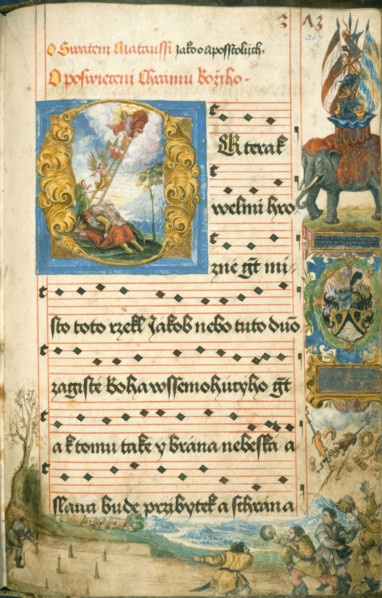 3 A3
O Swatem Mataussi Jako o aposstolijch.
O poswieceni Chramu Bozijho.
terak
welmi hro
zne gt mi-
sto toto rzekl Jakob nebo tuto duo
zagiste boha wssemohutyho gt
a k tomu take y brana nebeska a
slawa bude przibytek a schrana